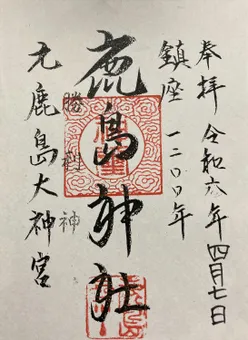 奉拝 令和六年四月七日
鎮座 一二〇〇年
鹿島神社
勝利神
元鹿島大神宮